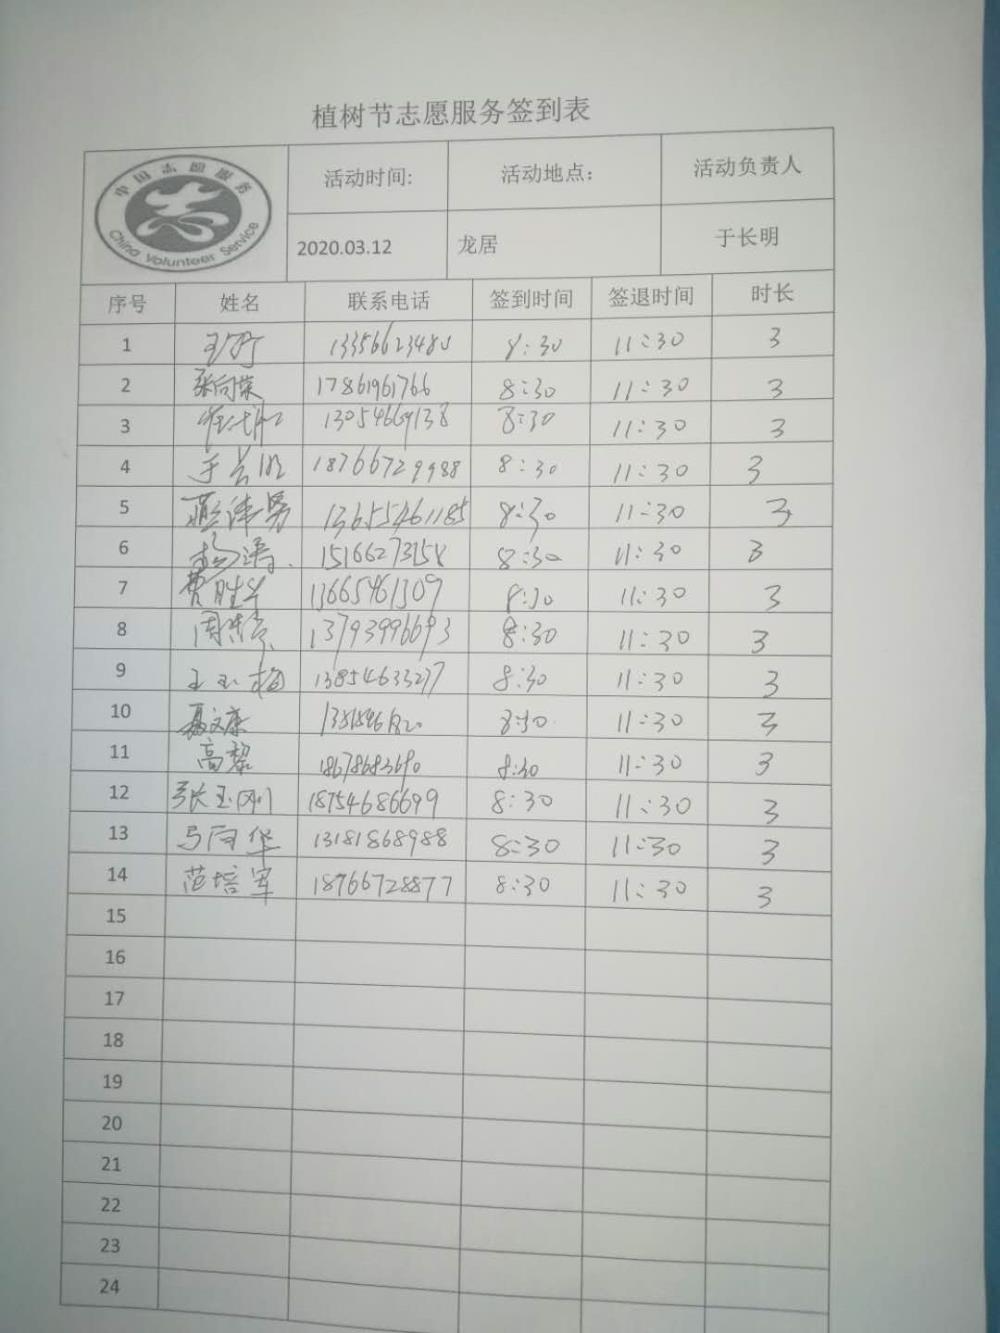 植树节志愿服务签到表
中国志愿服务
China Volunteer Service
活动时间: 活动地点： 活动负责人
2020.03.12 龙居 于长明
序号 姓名 联系电话 签到时间 签退时间 时长
1 8:30 11:30 3
2 张向荣 17861961766 8:30 11:30 3
3 13054669138 8:30 11:30 3
4 18766729988 8:30 11:30 3
5 13655461185 8:30 11:30 3
6 杨涛 15166273158 8:30 11:30 3
7 费胜华 13665461309 8:30 11:30 3
8 13793996693 8:30 11:30 3
9 王玉梅 13854633277 8:30 11:30 3
10 聂文康 8:30 11:30 3
11 高黎 18678683690 8:30 11:30 3
12 张玉刚 18754686699 8:30 11:30 3
13 13181868988 8:30 11:30 3
14 范培军 18766728877 8:30 11:30 3
15
16
17
18
19
20
21
22
23
24